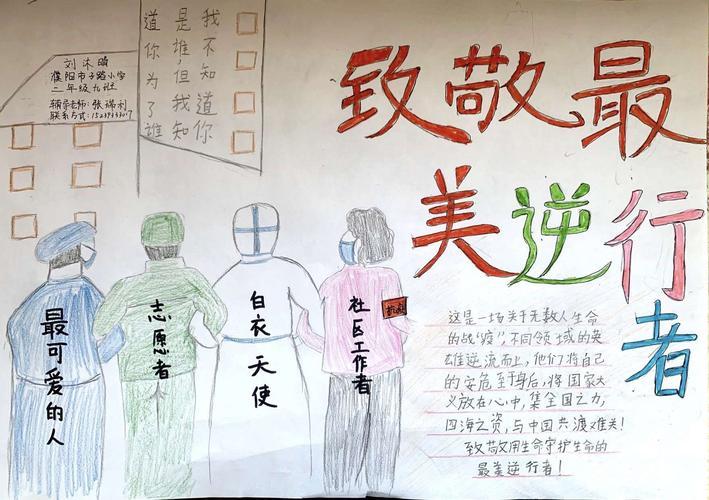 致敬最
美逆行
者
刘沐晴
濮阳市子路小学
二年级九班
辅导老师:
联系方式:
我不知道你
是谁,但我知
道你为了谁
最可爱的人
志愿者
白衣天使
社区工作者
抗疫
这是一场关于无数人生命
的战"疫",不同领域的英
雄逆流而上,他们将自己
的安危至于身后,将国家大
义放在心中,集全国之力,
四海之资,与中国共渡难关!
致敬用生命守护生命的
最美逆行者!